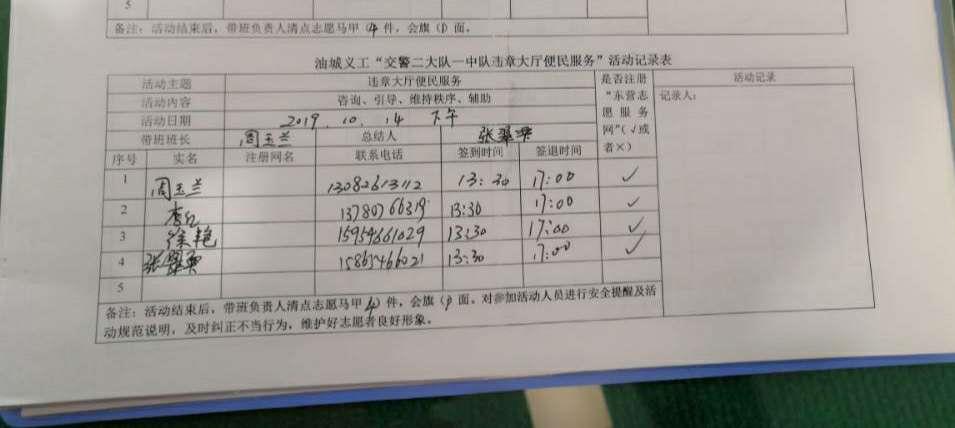 5
备注：活动结束后，带班负责人清点志愿马甲（4）件，会旗（1）面。
油城义工“交警二大队一中队违章大厅便民服务”活动记录表
活动主题 违章大厅便民服务 是否注册“东营志愿服务网”（√或者×） 活动记录
活动内容 咨询、引导、维持秩序、辅助 记录人：
活动日期 2019.10.14 下午
带班班长 周玉兰 总结人 张翠
序号 实名 注册网名 联系电话 签到时间 签退时间
1 周玉兰 13082613112 13:30 17:00 ✓
2 李红 13780766319 13:30 17:00 ✓
3 徐艳 15954661029 13:30 17:00 ✓
4 张翠 15865466021 13:30 17:00 ✓
5
备注：活动结束后，带班负责人清点志愿马甲（4）件，会旗（1）面。对参加活动人员进行安全提醒及活
动规范说明，及时纠正不当行为，维护好志愿者良好形象。